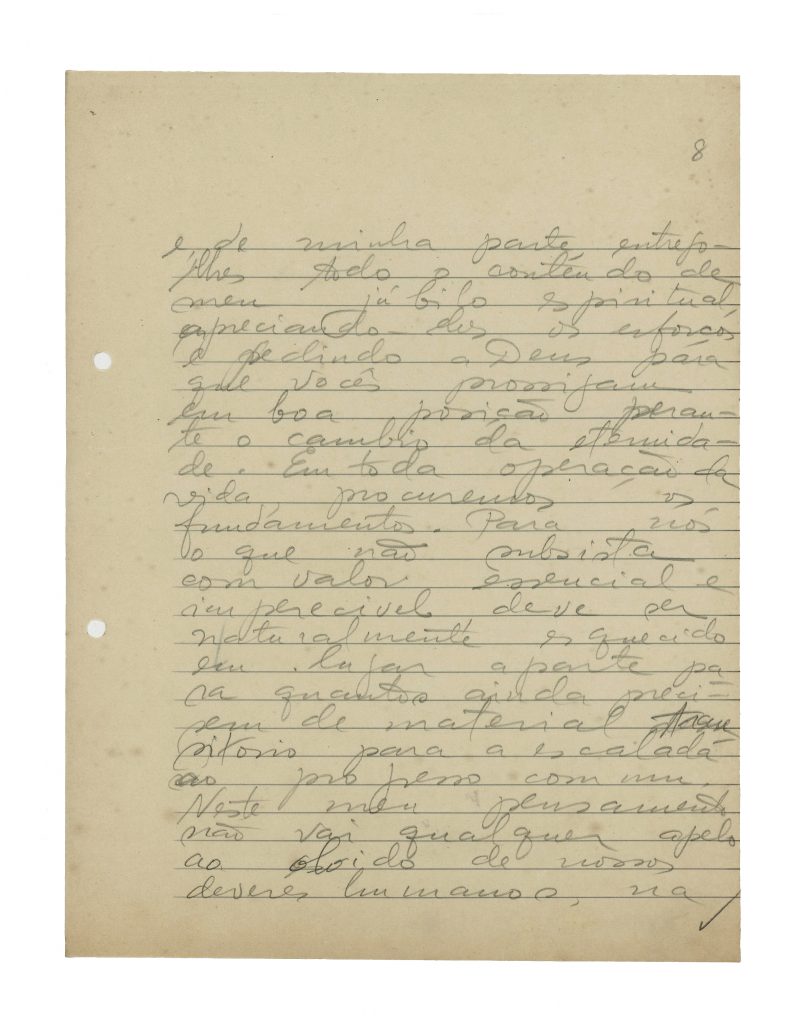 8
e, de minha parte, entrego-
lhes todo o conteúdo de
meu júbilo espiritual,
apreciando-lhes os esforços
e pedindo a Deus pára
que vocês prossigam
em boa posição peran-
te o cambio da eternida-
de. Em toda operação da
vida, procuremos os
fundamentos. Para nós
o que não subsista
com valor essencial e
imperecivel deve ser
naturalmente esquecido
em lugar aparte pa
ra quantos ainda preci-
sem de material tran
sitorio para a escalada
ao progresso commum.
Neste meu pensamento
não vai qualquer apelo
ao olvido de nossos
deveres humanos, na